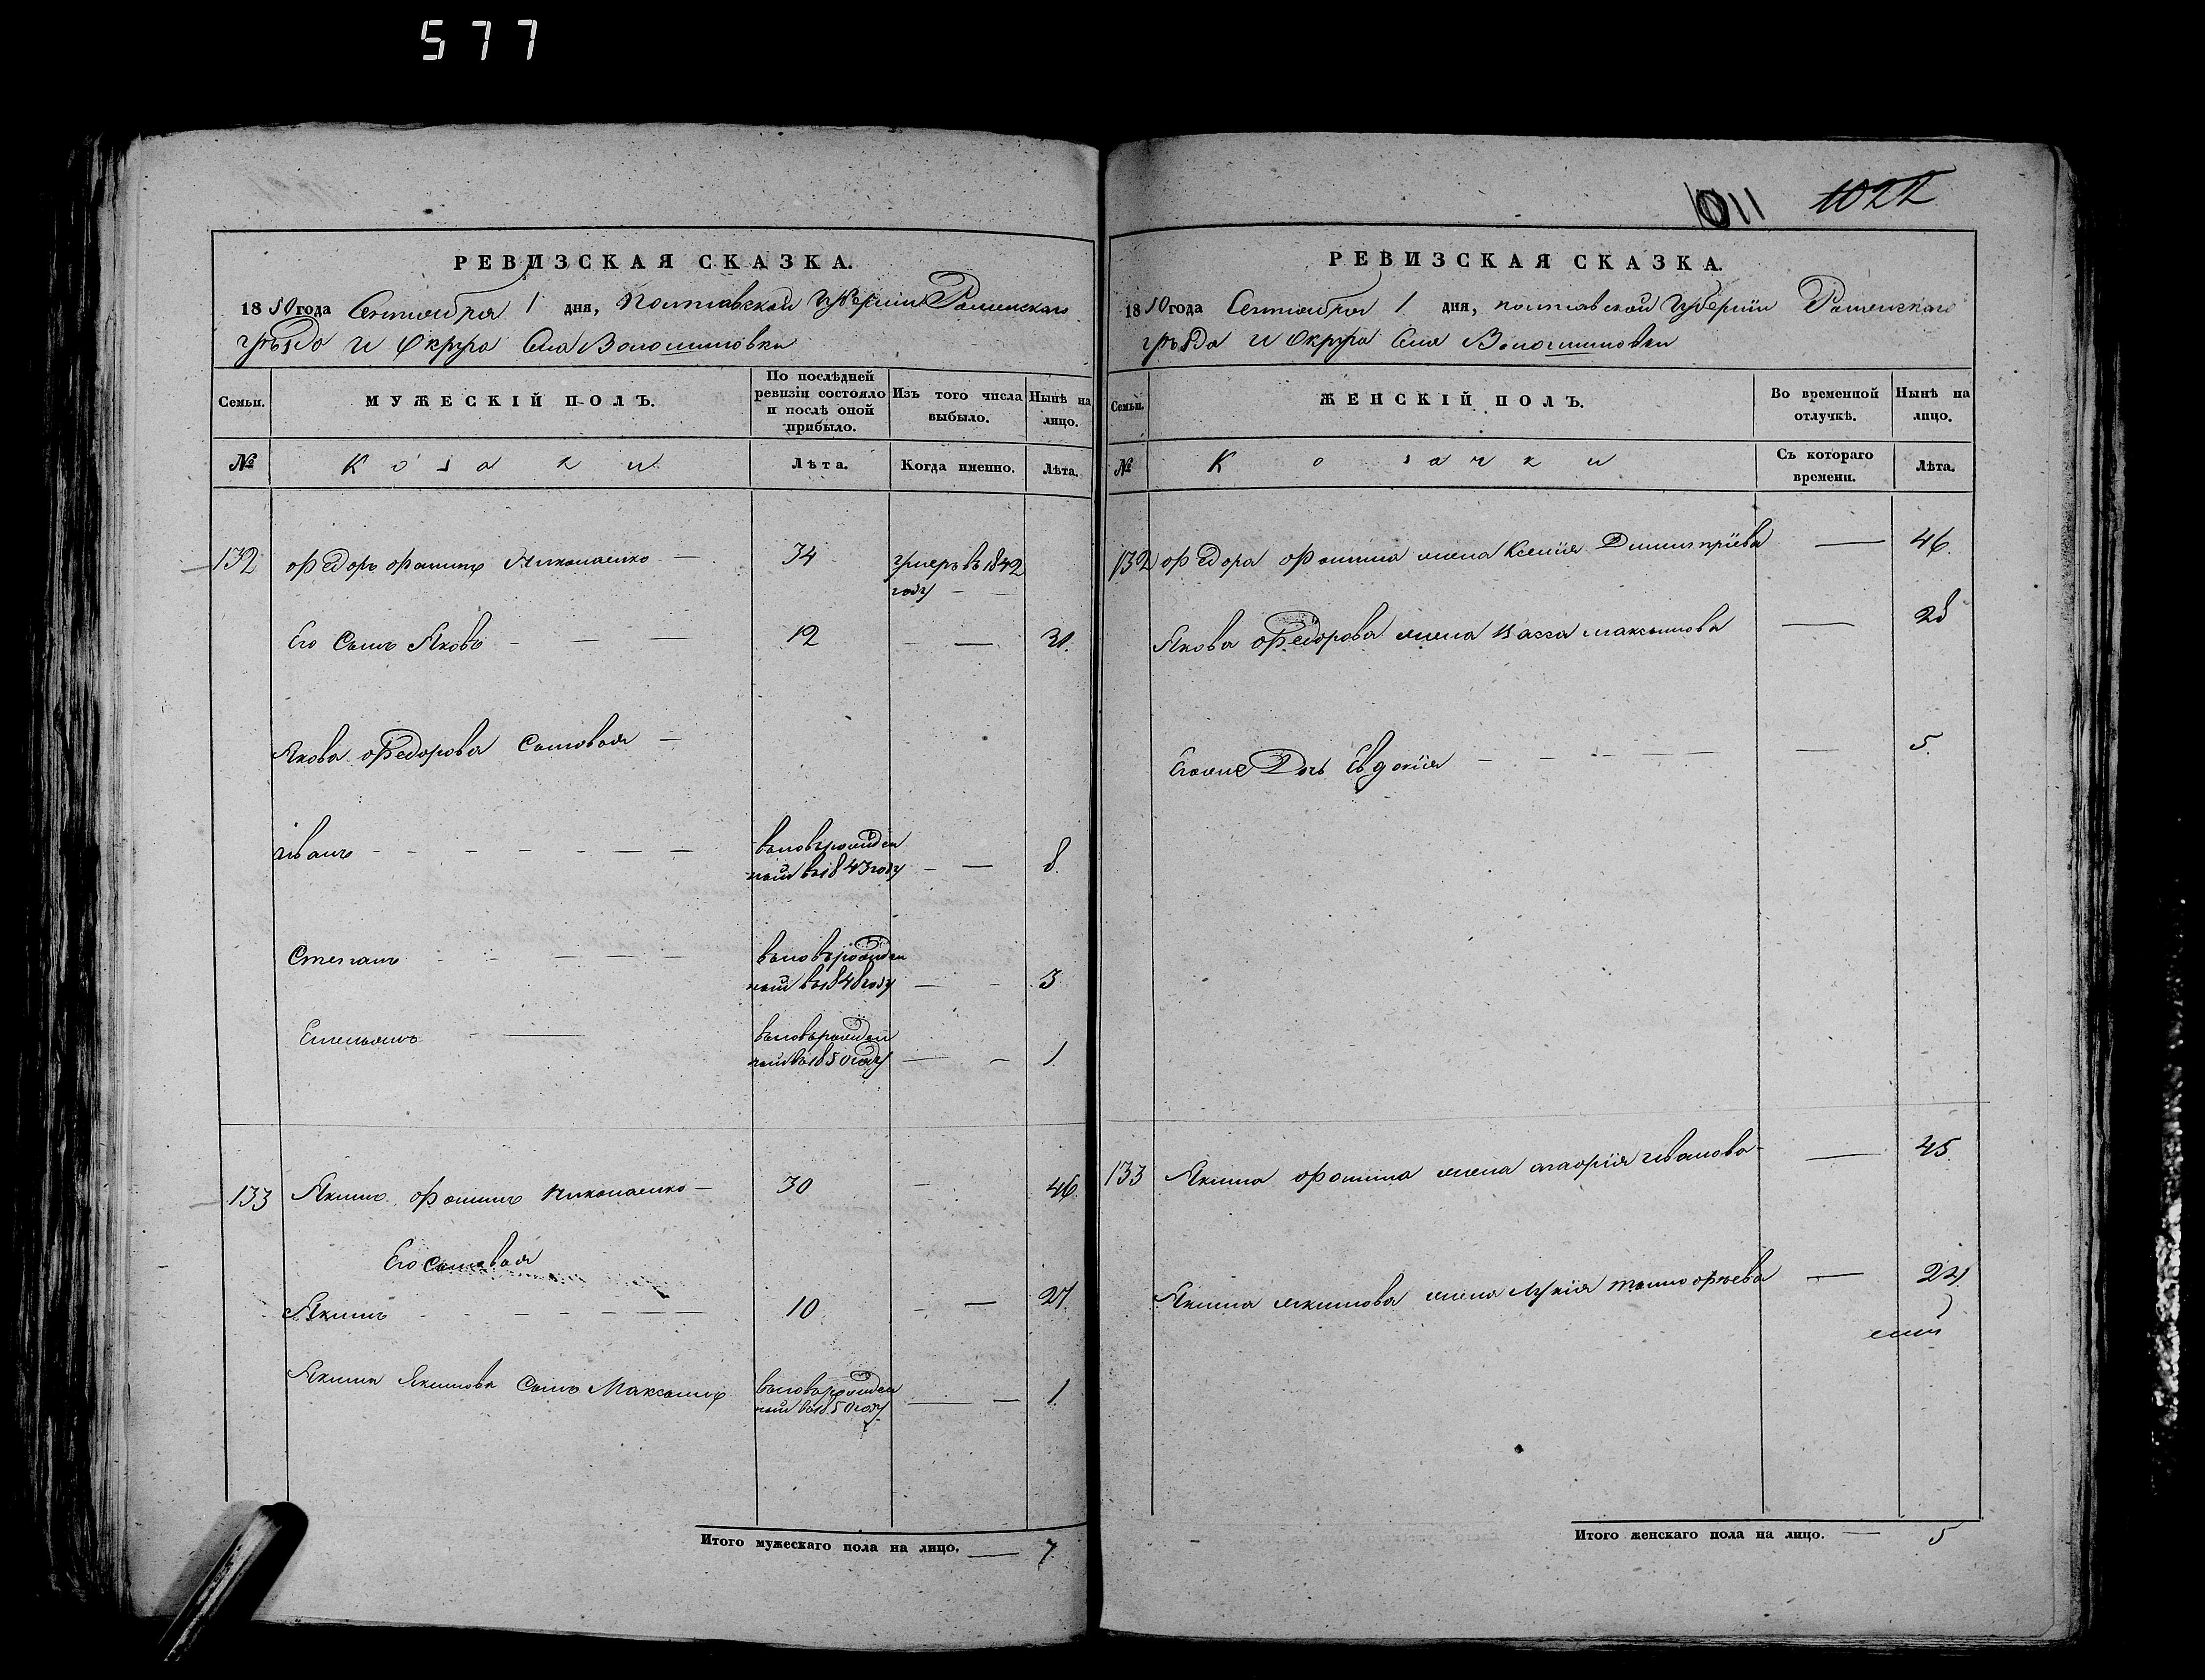 577
РЕВИЗСКАЯ СКАЗКА.
1850 года Сентября 1 дня, Полтавской Губерніи Роменскаго
уѣзда и Округа Села Волошиновки
Семьи.
МУЖЕСКІЙ ПОЛЪ.
По послѣдней ревизіи состояло и послѣ оной прибыло.
Изъ того числа выбыло.
Нынѣ на лицо.
№
Козаки
Лѣта.
Когда именно.
Лѣта.
132 Федоръ Фоминъ Николаенко — 34 умеръ въ 1842
году — —
Его Сынъ Яковъ — — — 12 — — 31.
Якова Федорова Сыновья —
Иванъ — — — — — — — вновьрожден
ный въ 1843 году — — 8.
Степанъ — — — — — вновьрожден
ный въ 1848 году — — 3
Емельянъ — — вновьрожден
ный въ 1850 году — — 1.
133 Якимъ Фоминъ Николаенко — 30 — 46.
Его Сыновья
Якимъ — — — — — — 10. — — 27.
Якима Якимова Сынъ Максимъ вновьрожден
ный въ 1850 году — — 1.
Итого мужескаго пола на лицо. — 7.
1011 1022
РЕВИЗСКАЯ СКАЗКА.
1850 года Сентября 1 дня, Полтавской Губерніи Роменскаго
уѣзда и Округа Села Волошиновки
Семьи.
ЖЕНСКІЙ ПОЛЪ.
Во временной отлучкѣ.
Нынѣ на лицо.
№
Козачки
Съ котораго времени.
Лѣта.
132 Федора Фомина жена Ксенія Дмитріева — 46.
Якова Федорова жена Васса Максимова — 28
Егоже Дочь Евдокія — — — — — — 5.
133 Якима Фомина жена Марія Иванова — — 45.
Якима Якимова жена Лукія Тимофѣева — 24.
Итого женскаго пола на лицо. — 5